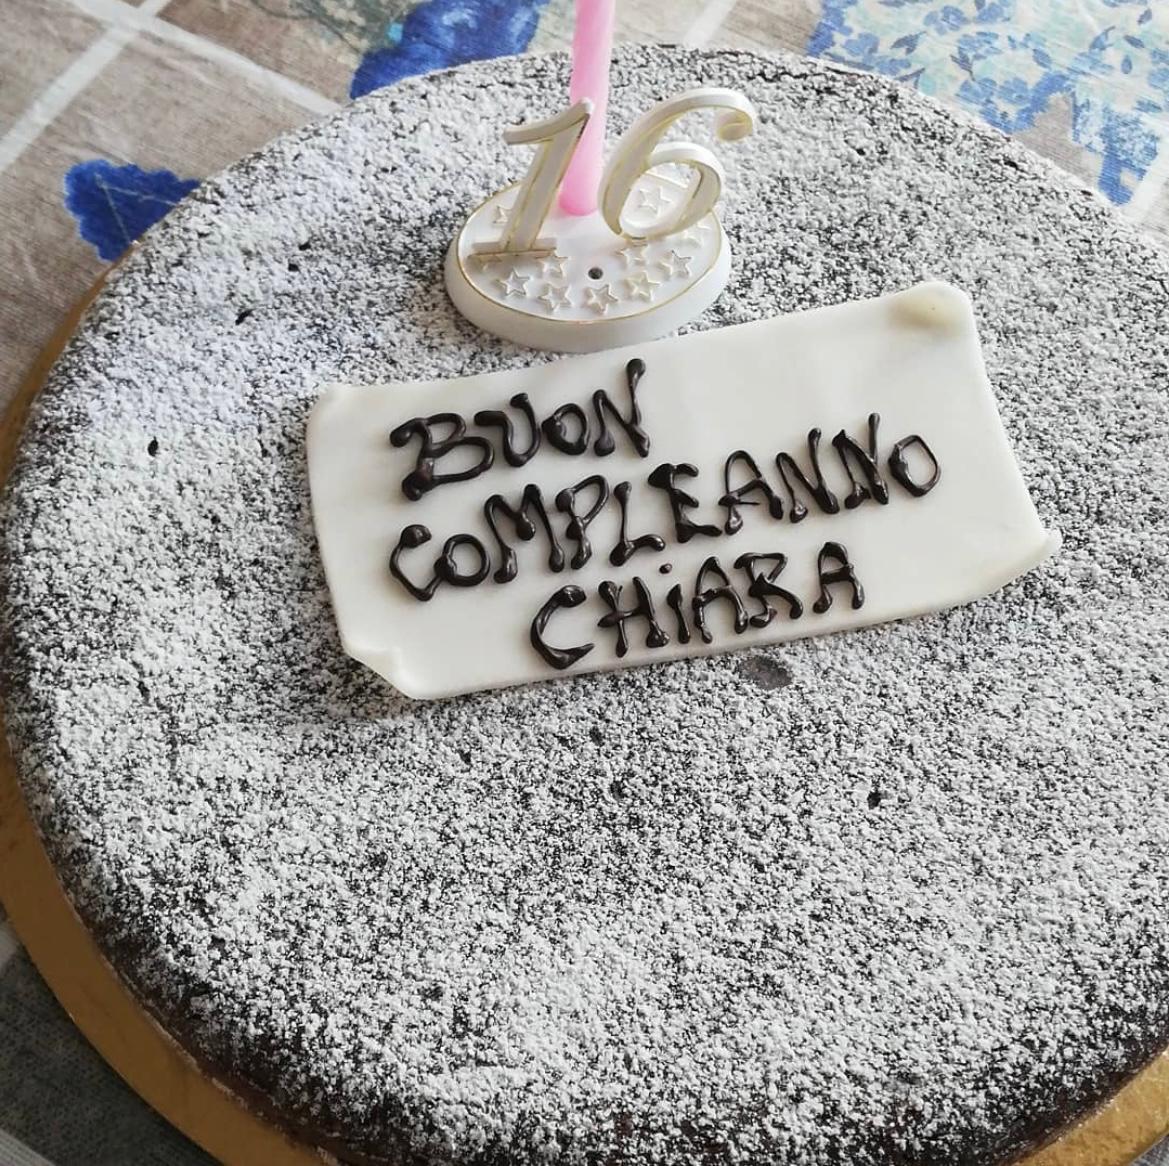 16
BUON
COMPLEANNO
CHiARA